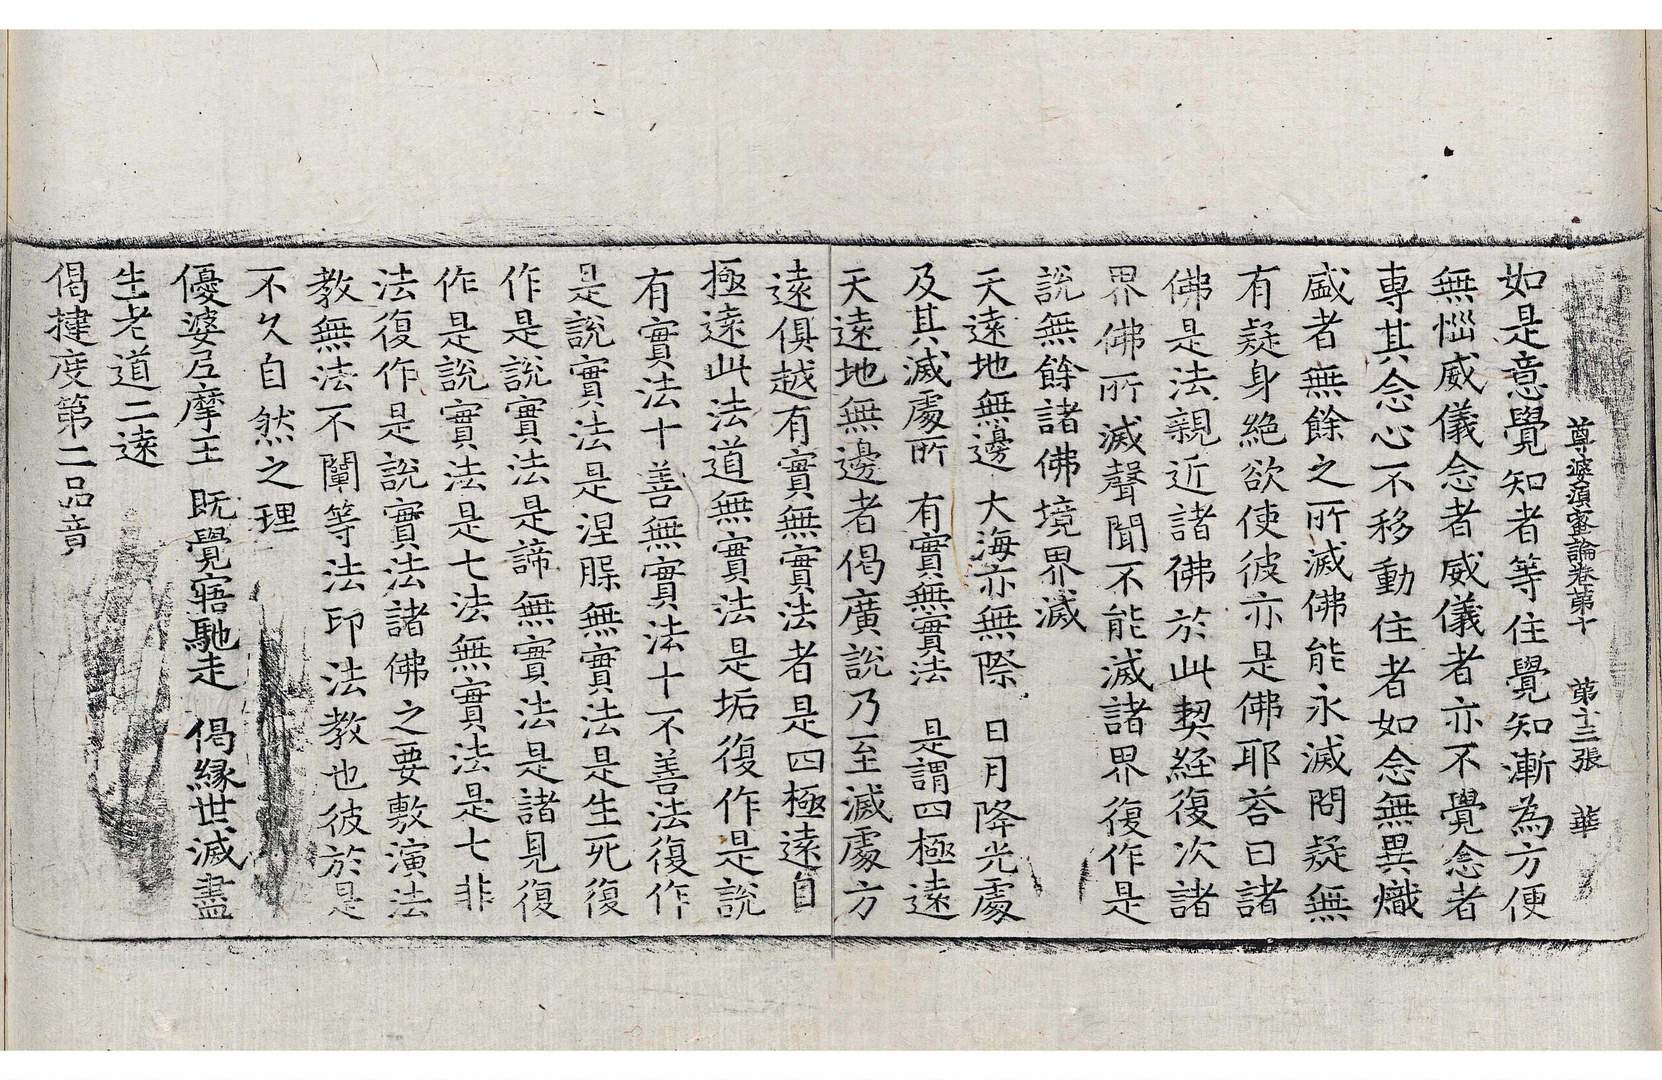 尊婆湏蜜論卷第十　第十三張　華
如是意覺知者等住覺知漸為方便
無惱威儀念者威儀者亦不覺念者
専其念心不移動住者如念無異熾
盛者無餘之所滅佛能永滅問疑無
有疑身絶欲使彼亦是佛耶荅曰諸
佛是法親近諸佛於此契経復次諸
界佛所滅聲聞不能滅諸界復作是
說無餘諸佛境界滅
天遠地無邊　大海亦無際　日月降光處
及其滅處所　有實無實法　是謂四極遠
天遠地無邊者偈廣說乃至滅處方
遠俱越有實無實法者是四極遠自
極遠此法道無實法是垢復作是說
有實法十善無實法十不善法復作
是說實法是涅槃無實法是生死復
作是說實法是諦無實法是諸見復
作是說實法是七法無實法是七非
法復作是說實法諸佛之要敷演法
教無法不闡等法印法教也彼於是
不久自然之理
優婆尼摩王　既覺寤馳走　偈縁世滅盡
生老道二遠
偈揵度第二品竟